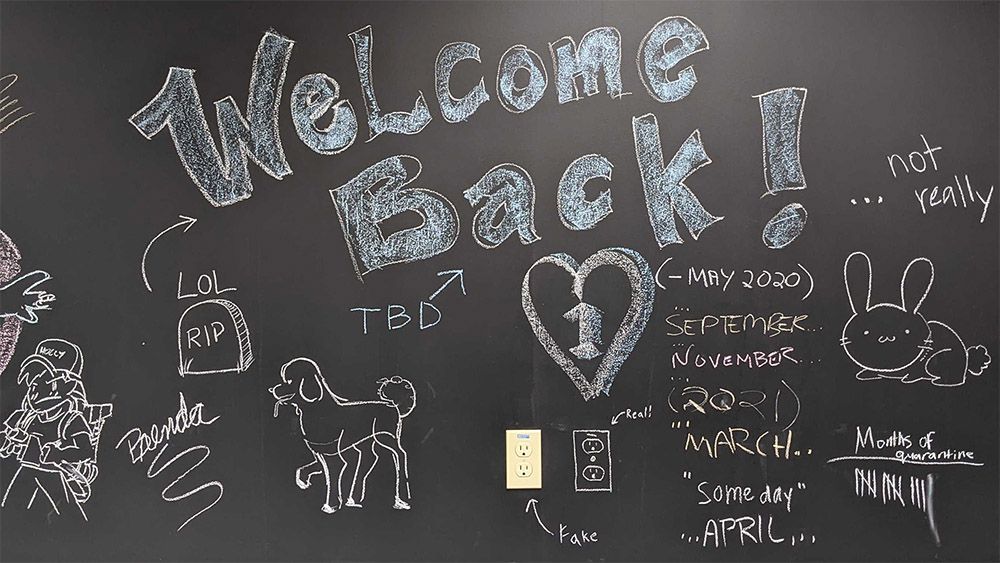 Welcome
Back!
... not
really
LOL
RIP
TBD
1
(-MAY 2020)
...
SEPTEMBER...
...
NOVEMBER...
...
(2021)
...
MARCH...
"Someday"
...APRIL...
MOLLY
Brenda
Real!
Fake
Months of
quarantine